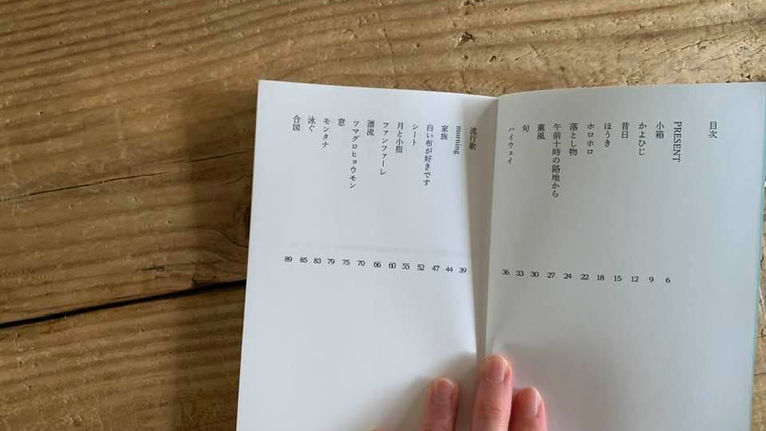 目次
PRESENT 6
小箱 9
かよひじ 12
昔日 15
ほうき 18
ホロホロ 22
落とし物 24
午前十時の路地から 27
薫風 30
旬 33
ハイウェイ 36
流行歌 39
morning 44
家族 47
白い布が好きです 52
シート 55
月と小指 60
ファンファーレ 66
漂流 70
ツマグロヒョウモン 75
窓 79
モンタナ 83
泳ぐ 85
合図 89